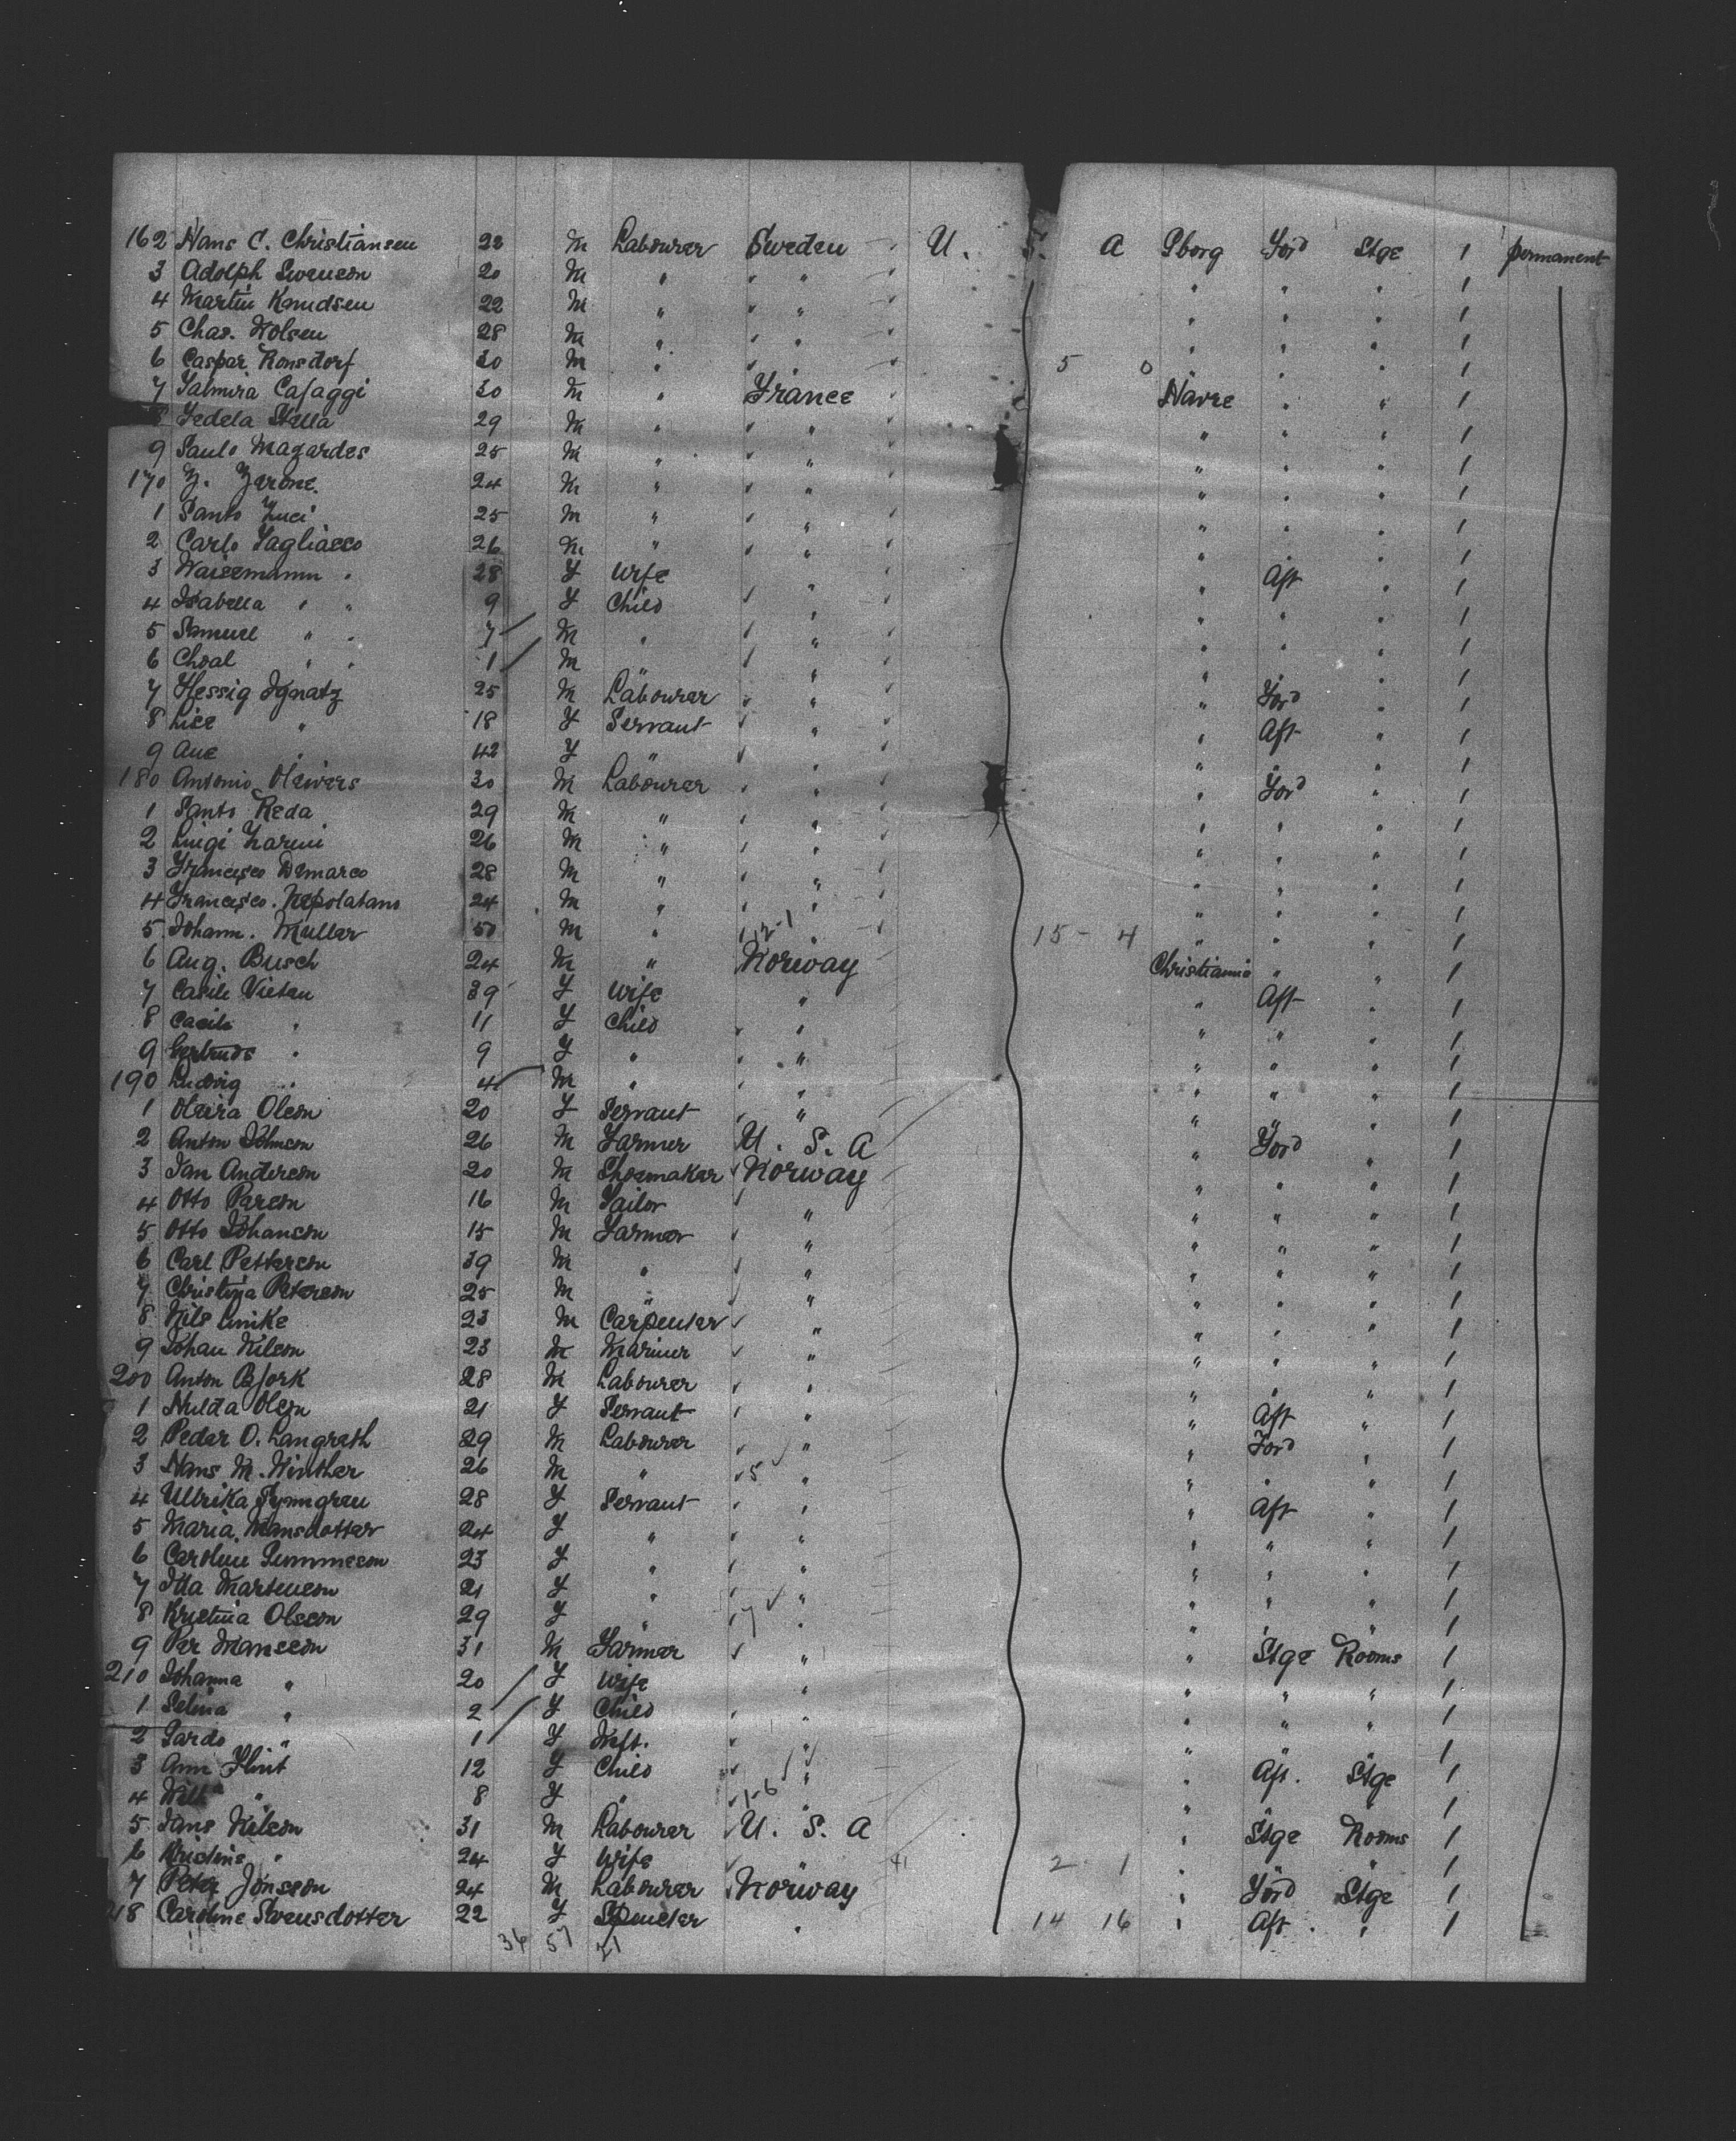 162 Hans C. Christiansen 22 M Labourer Sweden U. S. A Gborg Ford Stge 1 permanent
3 Adolph Swenson 20 M " " " " " " 1
4 Martin Knudsen 22 M " " " " " " 1
5 Chas. Nolsen 28 M " " " " " " 1
6 Caspar Ronsdorf 30 M " " 5 0 " " " 1
7 Palmira Cafaggi 30 M " France Havre " " 1
8 Fedela Stella 29 M " " " " " " 1
9 Paulo Magardes 25 M " " " " " " 1
170 Z. Zerone. 24 M " " " " " " 1
1 Santo Luci 25 M " " " " " " 1
2 Carlo Pagliacco 26 M " " " " " " 1
3 Waisemann " 28 F Wife " " " Aft " 1
4 Isabella " " 9 F Child " " " " " 1
5 Samuel " " 7 M " " " " " " 1
6 Choal " " 1 M " " " " " " 1
7 Hessig Ignatz 25 M Labourer " " " Ford " 1
8 Lise " 18 F Servant " " " Aft " 1
9 Ane " 42 F " " " " " " 1
180 Antonio Olivers 30 M Labourer " " " Ford " 1
1 Santo Reda 29 M " " " " " " 1
2 Luigi Zarini 26 M " " " " " " 1
3 Francisco Demarco 28 M " " " " " " 1
4 Francisco. Napolatano 24 M " " " " " " 1
5 Johann. Muller 50 M " " 12-1 " 15 - 4 " " " 1
6 Aug. Busch 24 M " Norway Christiania " " 1
7 Casili Vietan 39 F Wife " " Aft " 1
8 Casili " 11 F Child " " " " " 1
9 Gertruds " 9 F " " " " " " 1
190 Ludvig " 4 M " " " " " " 1
1 Olivia Olson 20 F Servant " " " " " 1
2 Anton Johnson 26 M Farmer U. S. A " Ford " 1
3 Jan Anderson 20 M Shoemaker Norway " " " 1
4 Otto Parson 16 M Tailor " " " " 1
5 Otto Johanson 15 M Farmer " " " " 1
6 Carl Petterson 39 M " " " " " 1
7 Christina Peterson 25 M " " " " " 1
8 Nils Linike 23 M Carpenter " " " " 1
9 Johan Nilson 23 M Mariner " " " " 1
200 Anton Bjork 28 M Labourer " " " " 1
1 Hulda Olson 21 F Servant " " Aft " 1
2 Peder O. Langrath 29 M Labourer " " Ford " 1
3 Hans M. Winther 26 M " 5 " " " " 1
4 Ullrika Tynngren 28 F Servant " " Aft " 1
5 Maria Mansdotter 24 F " " " " " 1
6 Caroline Summeson 23 F " " " " " 1
7 Ida Martenson 21 F " " " " " 1
8 Kristina Olsson 29 F " 7 " " " " 1
9 Per Mansson 31 M Farmer " " Stge Rooms 1
210 Johanna " 20 F Wife " " " " 1
1 Selma " 2 F Child " " " " 1
2 Gardo " 1 F Inft. " " " " 1
3 Ann Flint 12 F Child " " Aft. Stge 1
4 " 8 F " 1-6 " " 1
5 Jans Nilson 31 M Labourer U. S. A " Stge Rooms 1
6 Kristins " 24 F Wife " 41 2 1 " " " 1
7 Peter Jonsson 24 M Labourer Norway " Ford Stge 1
218 Caroline Swensdotter 22 F Spinster " 14 16 " Aft " 1
36 57 21